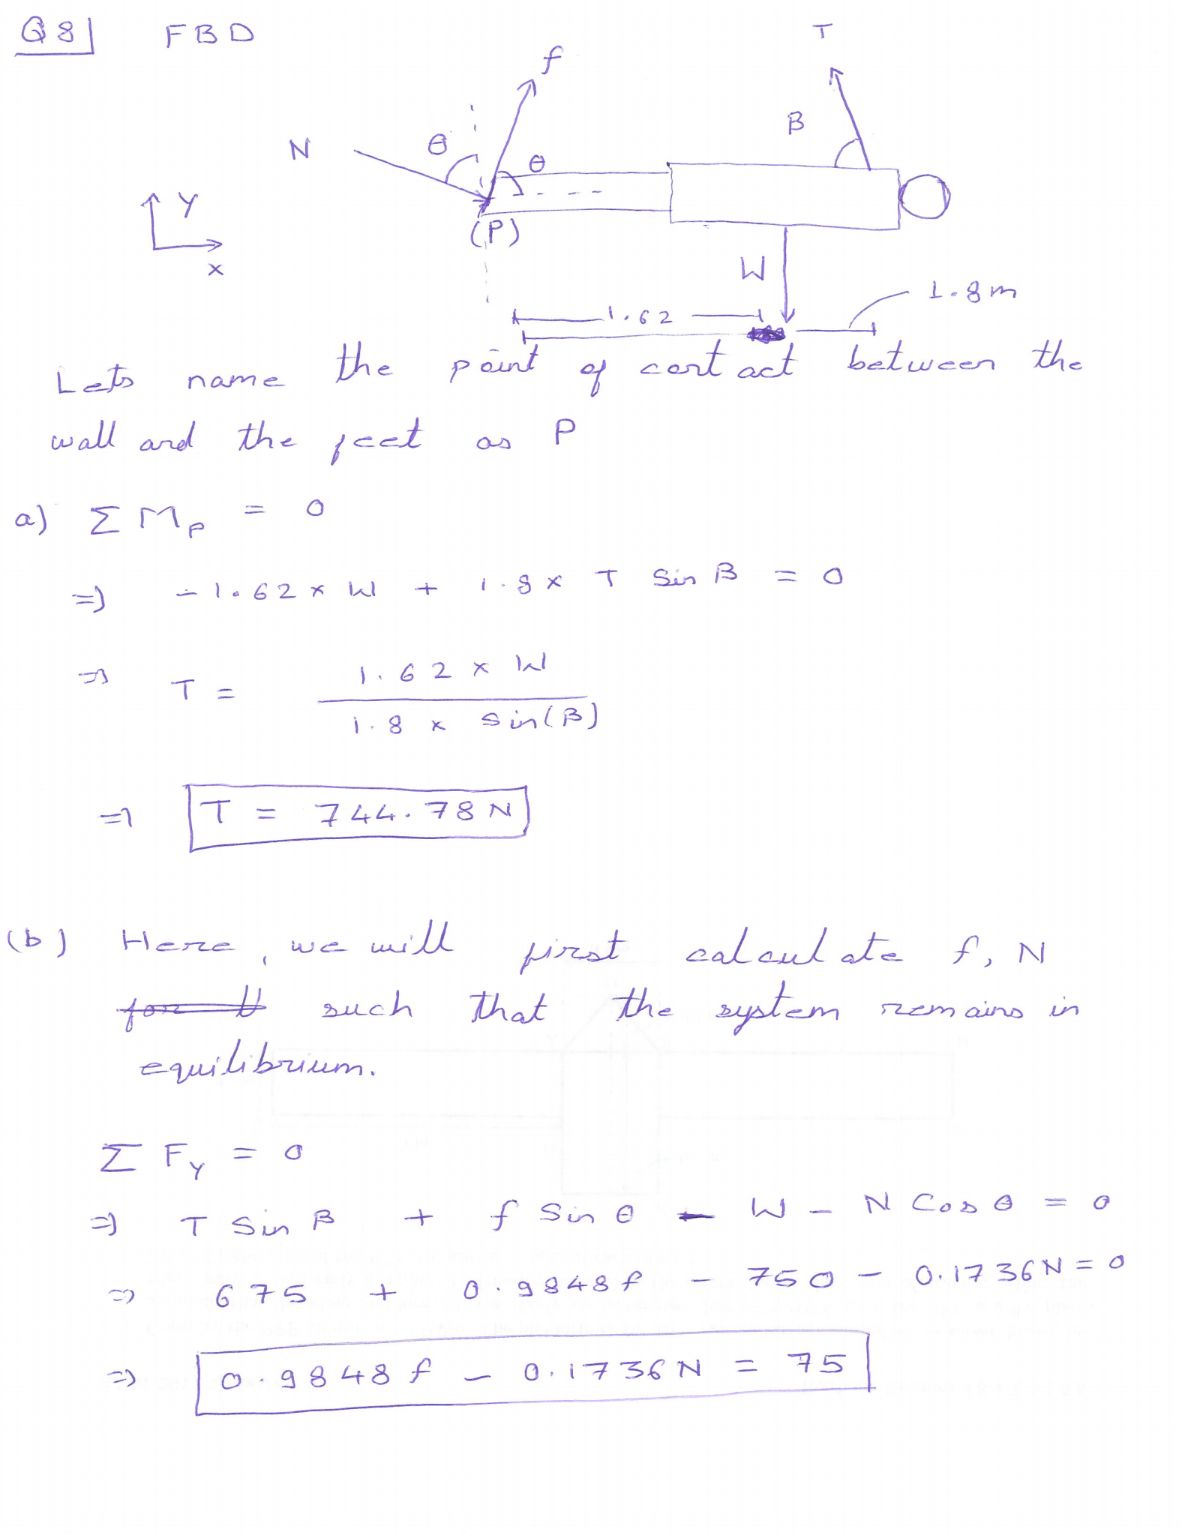 Q8] FBD
T
f
B
N
θ
θ
Y
(P)
W
x
1.8m
1.62
Lets name the point of contact between the
wall and the feet as P
a) Σ Mp = 0
=) - 1.62 x W + 1.8 x T Sin B = 0
=) T = 1.62 x W
1.8 x Sin(B)
=) T = 744.78 N
(b) Here, we will first calculate f, N
such that the system remains in
equilibrium.
Σ Fy = 0
=) T Sin B + f Sin θ - W - N Cos θ = 0
=) 675 + 0.9848f - 750 - 0.1736N = 0
=) 0.9848 f - 0.1736N = 75